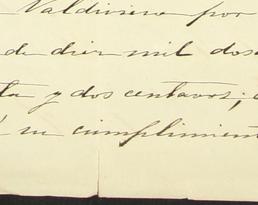 Valdivieso por
de diez mil dos
ta y dos centavos;
su cumplimient